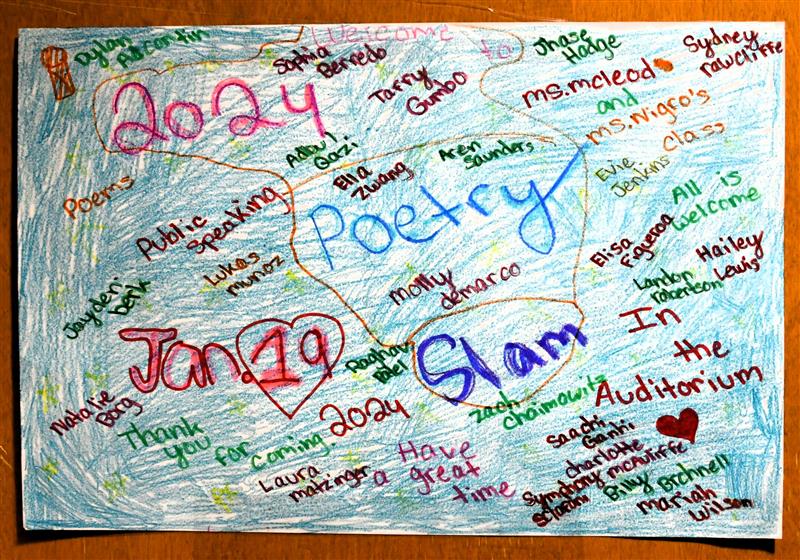 Welcome to
Dylan
Sophia
Berredo
Jhase
Hodge
Sydney
rawcliffe
2024
Tarry
Gumbo
ms.mcleod
and
ms.Nigro's
class
Abdul
Qazi
Ella
Zwang
Aren
Saunders
Evie
Jenkins
Poems
Public
Speaking
Poetry
All is
welcome
Lukas
munoz
Elisa
Figueroa
Hailey
Lewis
Jayden
Berik
molly
demarco
Landon
robertson
Jan.19
Raghav
Slam
In
the
Auditorium
2024
Natalie
Borg
zach
chaimowitz
Thank
you
for
coming
Saachi
charlotte
mcAuliffe
Laura
matzinger
Have
a great
time
Symphony
Billy Bicknell
mariah
wilson